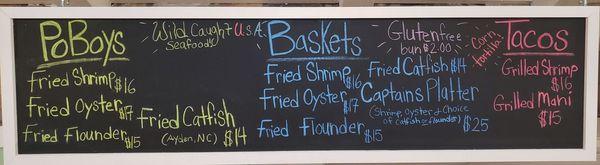 PoBoys
Fried Shrimp $16
Fried Oyster $17
Fried Flounder $15
Fried Catfish
(Ayden, NC) $14
Wild Caught U.S.A.
Seafood
Baskets
Fried Shrimp $16
Fried Oyster $17
Fried Flounder $15
Gluten free
bun $2.00
Fried Catfish $14
Captains Platter
(Shrimp, Oyster + Choice
of catfish or flounder) $25
Corn
tortilla
Tacos
Grilled Shrimp
$16
Grilled Mahi
$15